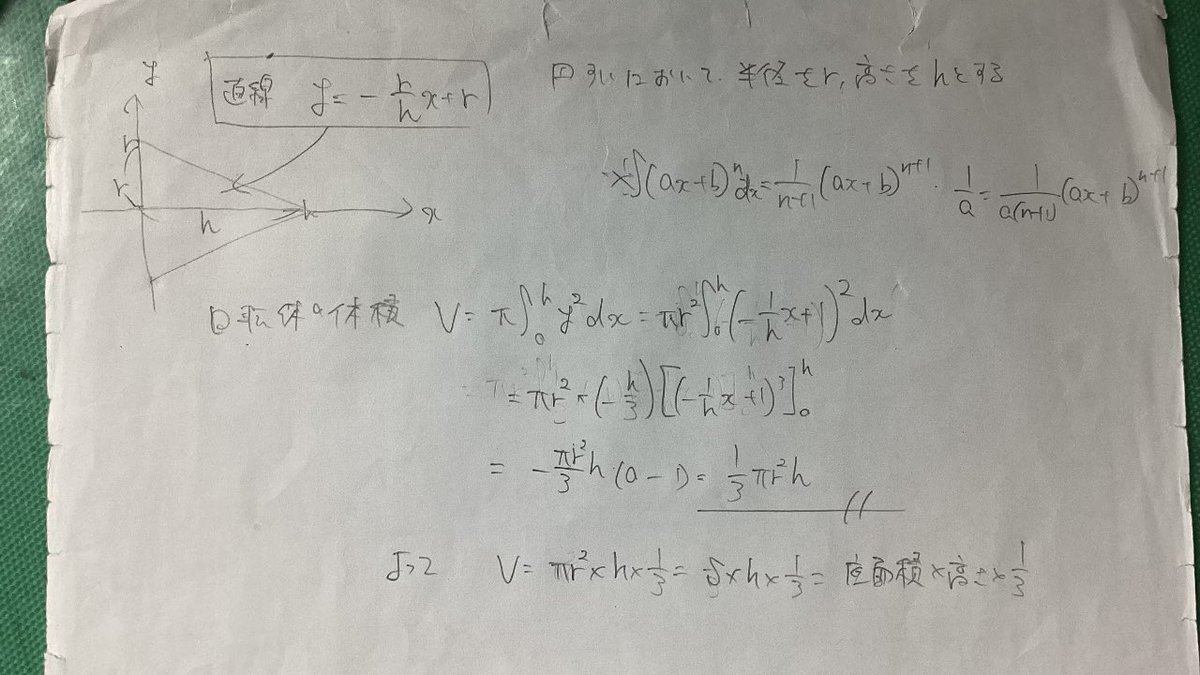 円すいにおいて、半径をr, 高さをhとする
直線 y = -r/h x + r
y
r
r
h
h
x
※∫(ax+b)^n dx = 1/(n+1) (ax+b)^(n+1) · 1/a = 1/(a(n+1)) (ax+b)^(n+1)
回転体の体積 V = π∫₀^h y² dx = πr²∫₀^h (-1/h x + 1)² dx
= πr² × (-h/3) [(-1/h x + 1)³]₀^h
= -πr²/3 h (0 - 1) = 1/3 πr²h
よって V = πr² × h × 1/3 = S × h × 1/3 = 底面積 × 高さ × 1/3